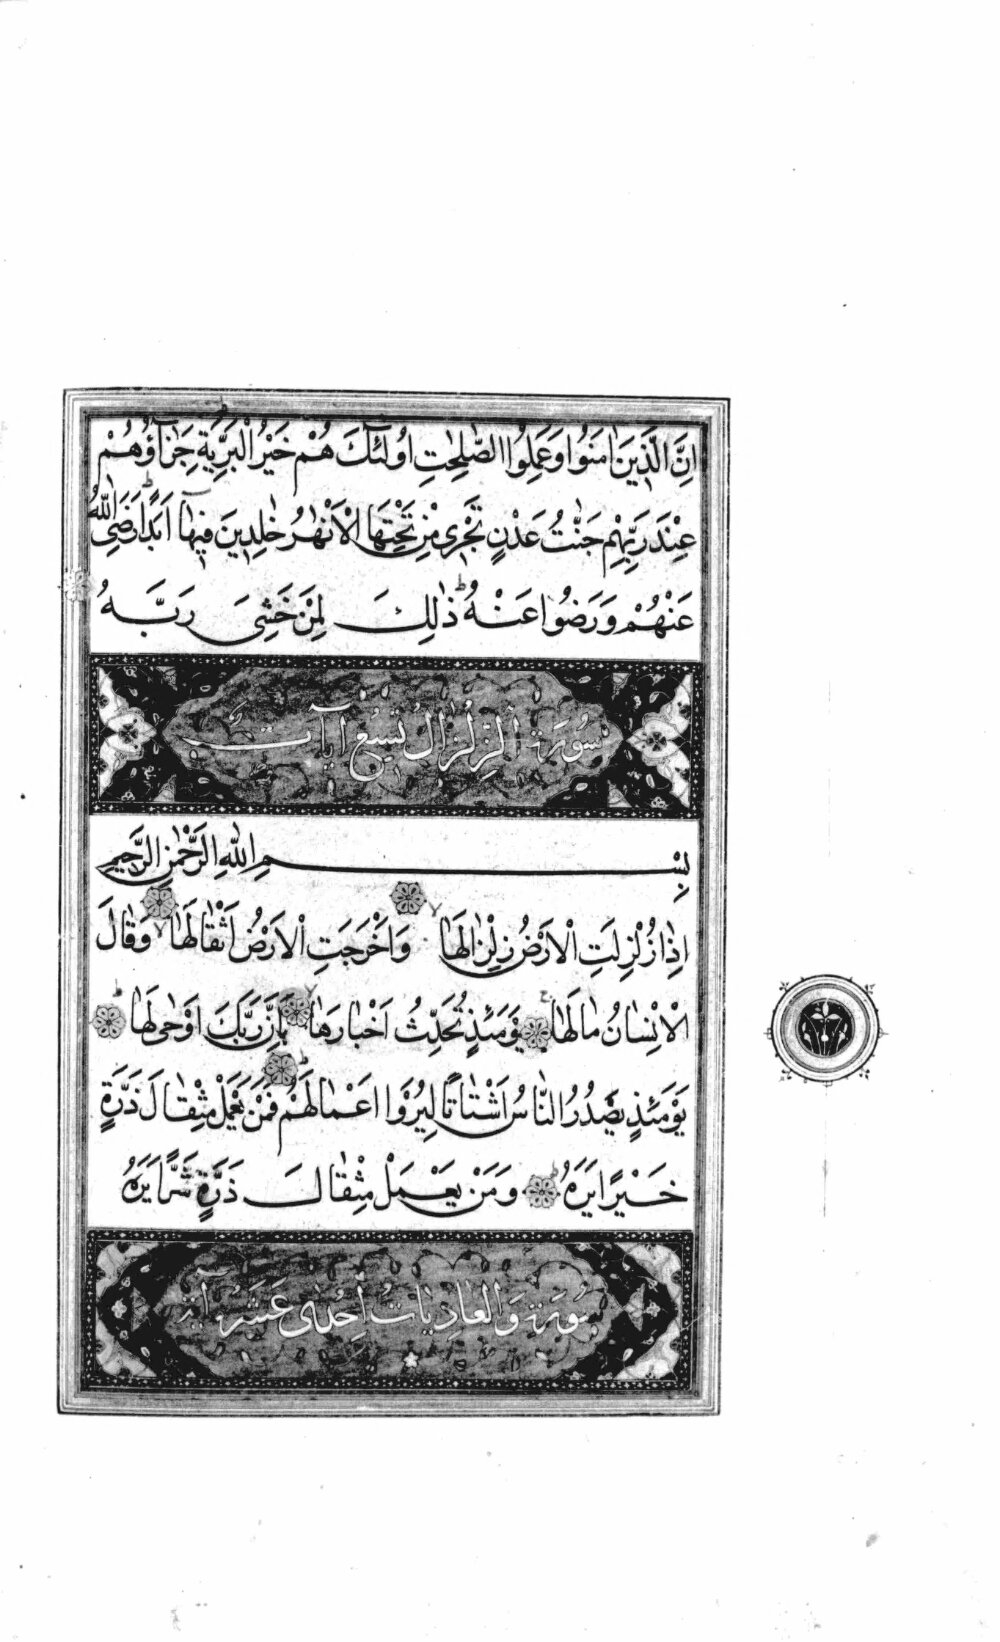 اِنَّ الَّذينَ اٰمَنُوا وَعَمِلُوا الصّٰلِحٰتِ اُولٰئِكَ هُمْ خَيْرُ الْبَرِيَّةِ جَزٰٓاؤُهُمْ
عِنْدَ رَبِّهِمْ جَنّٰتُ عَدْنٍ تَجْرى مِنْ تَحْتِهَا الْاَنْهٰرُ خٰلِدينَ فيهٰٓا اَبَدًا رَضِىَ اللّٰهُ
عَنْهُمْ وَرَضُوا عَنْهُ ذٰلِكَ لِمَنْ خَشِىَ رَبَّهُ
سُورَة اَلزِلْزٰالُ تِسْعُ اٰيَات
بِسْمِ اللّٰهِ الرَّحْمٰنِ الرَّحيمِ
اِذٰا زُلْزِلَتِ الْاَرْضُ زِلْزٰالَهٰا وَاَخْرَجَتِ الْاَرْضُ اَثْقٰالَهٰا وَقٰالَ
الْاِنْسٰانُ مٰا لَهٰا يَوْمَئِذٍ تُحَدِّثُ اَخْبٰارَهٰا بِاَنَّ رَبَّكَ اَوْحٰى لَهٰا
يَوْمَئِذٍ يَصْدُرُ النّٰاسُ اَشْتٰاتًا لِيُرَوْا اَعْمٰالَهُمْ فَمَنْ يَعْمَلْ مِثْقٰالَ ذَرَّةٍ
خَيْرًا يَرَهُ وَمَنْ يَعْمَلْ مِثْقٰالَ ذَرَّةٍ شَرًّا يَرَهُ
سُورَة وَالعَادِيَاتُ اِحْدٰى عَشَرَ اٰية